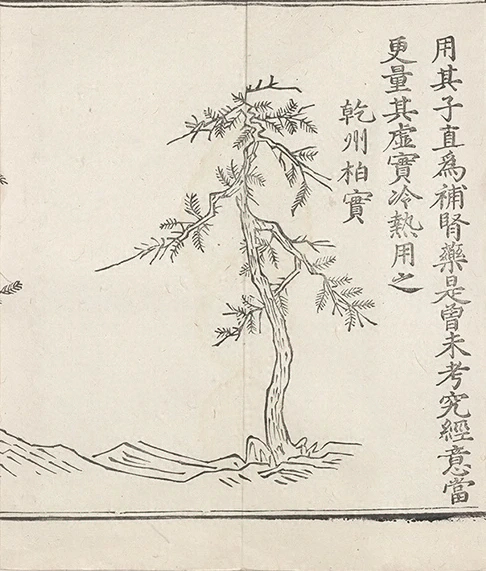 用其子直爲補腎藥是曾未考究經意當
更量其虛實冷熱用之
乾州柏實